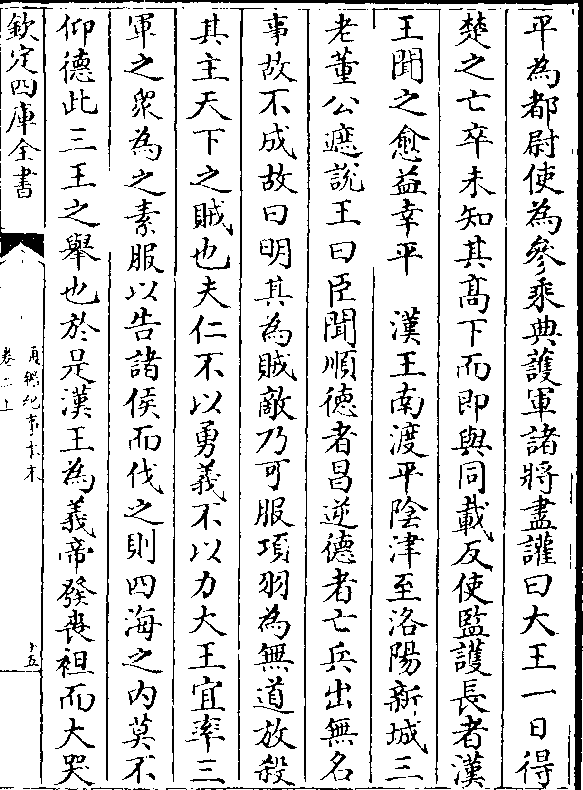 平為都尉使為參乘典護軍諸將盡讙曰大王一日得
楚之亡卒未知其髙下而即與同載反使監護長者漢
王聞之愈益幸平　漢王南渡平陰津至洛陽新城三
老董公遮說王曰臣聞順德者昌逆德者亡兵出無名
事故不成故曰明其為賊敵乃可服項羽為無道放殺
其主天下之賊也夫仁不以勇義不以力大王宜率三
軍之衆為之素服以告諸侯而伐之則四海之内莫不
仰德此三王之舉也於是漢王為義帝發喪袒而大哭
欽定四庫全書
卷二上
紀事本末
十五